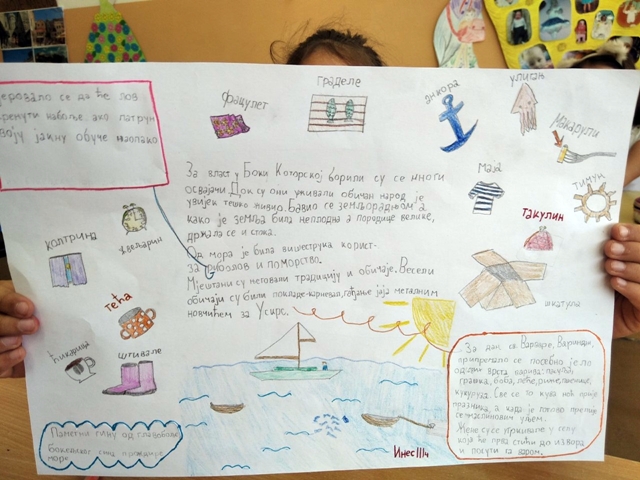 јеровало се да ће лов
кренути набоље ако патрун
своју јакну обуче наопако
фацулет
граделе
анкора
улигањ
макарули
тимун
маја
такулин
шкатула
колтрина
жвеларин
тећа
ћикарица
штивале
За власт у Боки Которској борили су се многи
освајачи. Док су они уживали обичан народ је
увијек тешко живио. Бавио се земљорадњом а
како је земља била неплодна а породице велике,
држала се и стока.
Од мора је била вишеструка корист-
за риболов и поморство.
Мјештани су његовали традицију и обичаје. Весели
обичаји су били покладе-карневал, гађање јаја металним
новчићем за Ускрс.
За дан св. Варваре, Варицан,
припремало се посебно јело
од врста варива: пасуља,
грашка, боба, леће, пиринча, пшенице,
кукуруза. Све се то кува ноћ прије
празника, а када је готово прелије
се маслиновим уљем.
Жене су се утркивале у селу
која ће прва стићи до извора
и посути га варом.
Паметни гину од главобоље
бокешког сина прождире
море
Инес III4